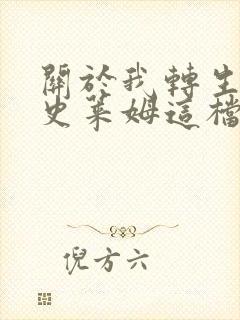 關於我轉生
史萊姆這檔
倪方六